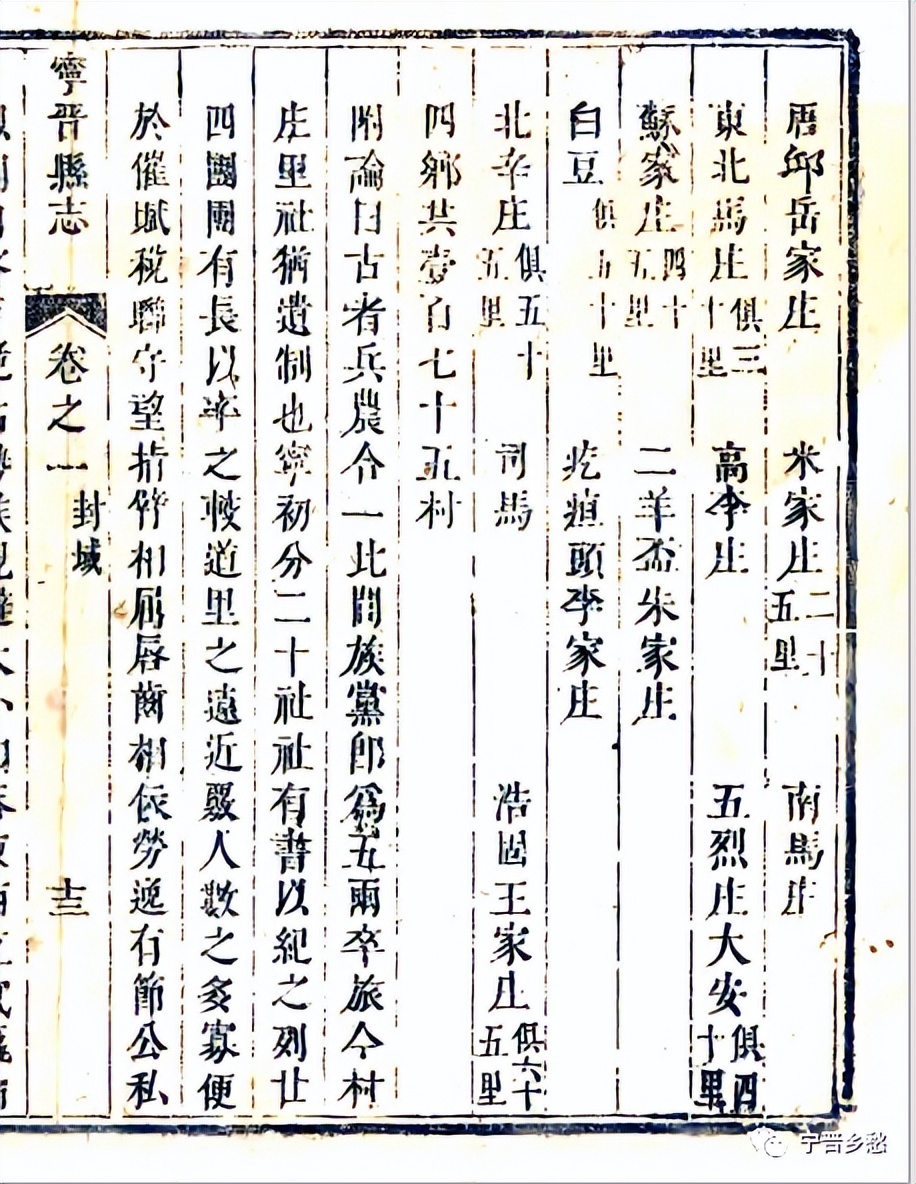 唐邱岳家庄 米家庄二十五里 南馬庄
東北馬庄俱三十里 高李庄 五烈庄大安俱四十里
蘇家庄四十五里 二羊盃朱家庄
白豆俱五十里 疙疸頭李家庄
北辛庄俱五十五里 司馬 浩固王家庄俱六十五里
四鄉共壹百七十五村
附論曰古者兵農合一比閭族黨即爲五兩卒旅今村
庄里社猶遺制也寧初分二十社社有書以紀之列廿
四團團有長以率之較道里之遠近覈人數之多寡便
於催賦稅聯守望指臂相屬唇齒相依勞逸有節公私
寧晉縣志 卷之一 封域 十三
宁晋乡愁